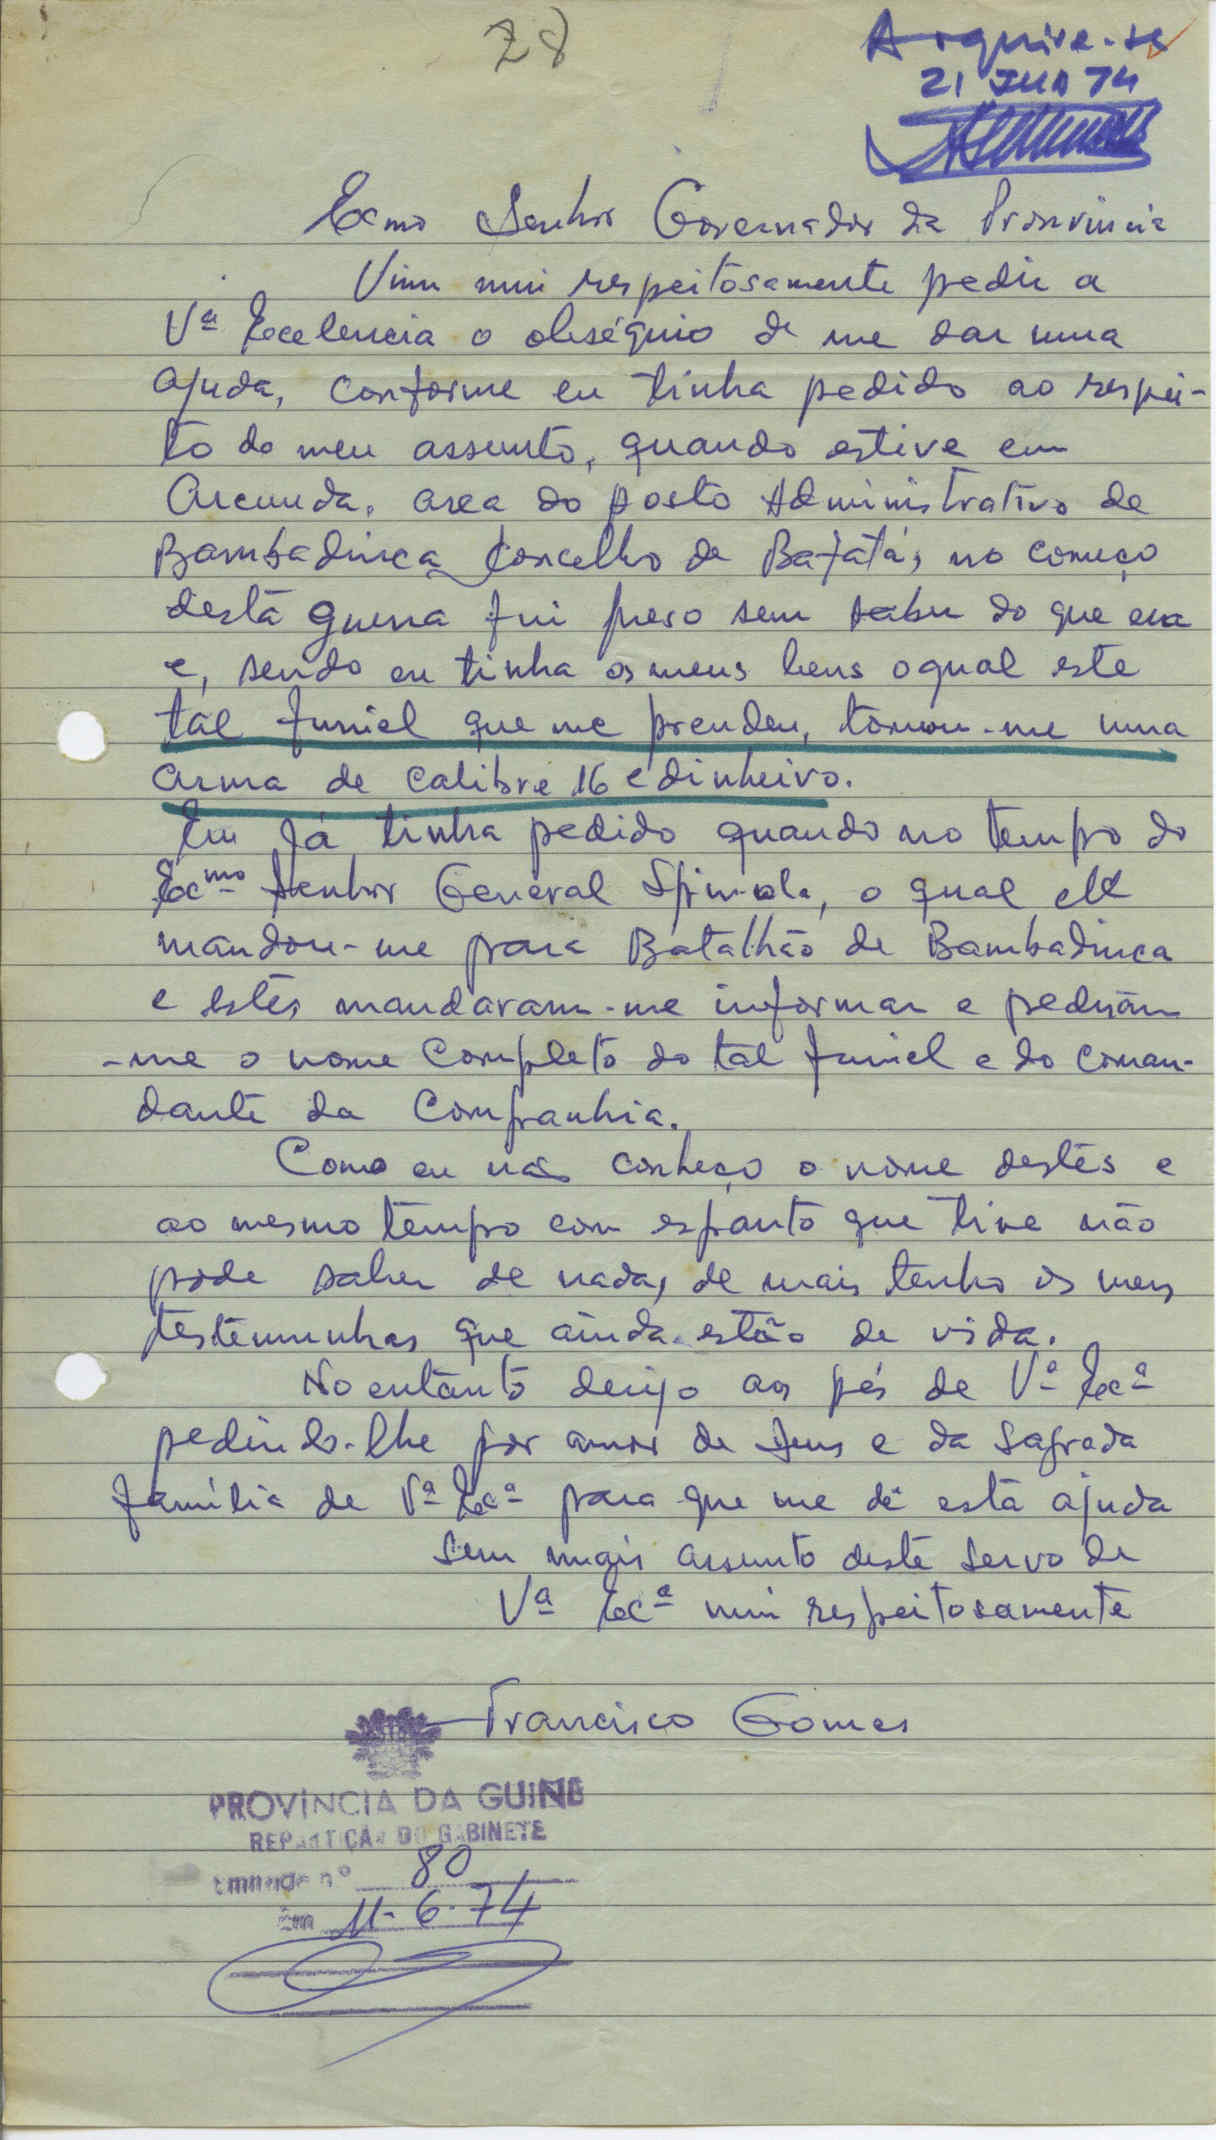 28
Arquive-se
21 JUN 74
Exmo Senhor Governador da Provincia
Vim mui respeitosamente pedir a
Vª Excelencia o obséquio de me dar uma
ajuda, conforme eu tinha pedido ao respei-
to do meu assunto, quando estive em
area do posto Administrativo de
Bambadinca Concelho de Bafatá, no começo
destã guerra fui preso sem saber do que era
e, sendo eu tinha os meus bens oqual este
tal furriel que me prendeu, tomou-me uma
arma de calibre 16 e dinheiro.
Eu Já tinha pedido quando no tempo do
Excmo Senhor General Spinola, o qual ele
mandou-me para Batalhão de Bambadinca
e estes mandaram-me informar e pediram
-me o nome completo do tal furriel e do coman-
dante da Companhia.
Como eu não conheço o nome destes e
ao mesmo tempo com espanto que tive não
pode saber de nada, de mais tenho os meus
testemunhas que ainda estão de vida.
No entanto derijo aos pés de Vª Excª
pedindo-lhe por amor de Deus e da Sagrada
família de Vª Excª para que me dê esta ajuda
Sem mais assunto deste servo de
Vª Excª mui respeitosamente
Francisco Gomes
PROVÍNCIA DA GUINÉ
REPARTIÇÃO DO GABINETE
Entrada nº 80
Em 11-6-74